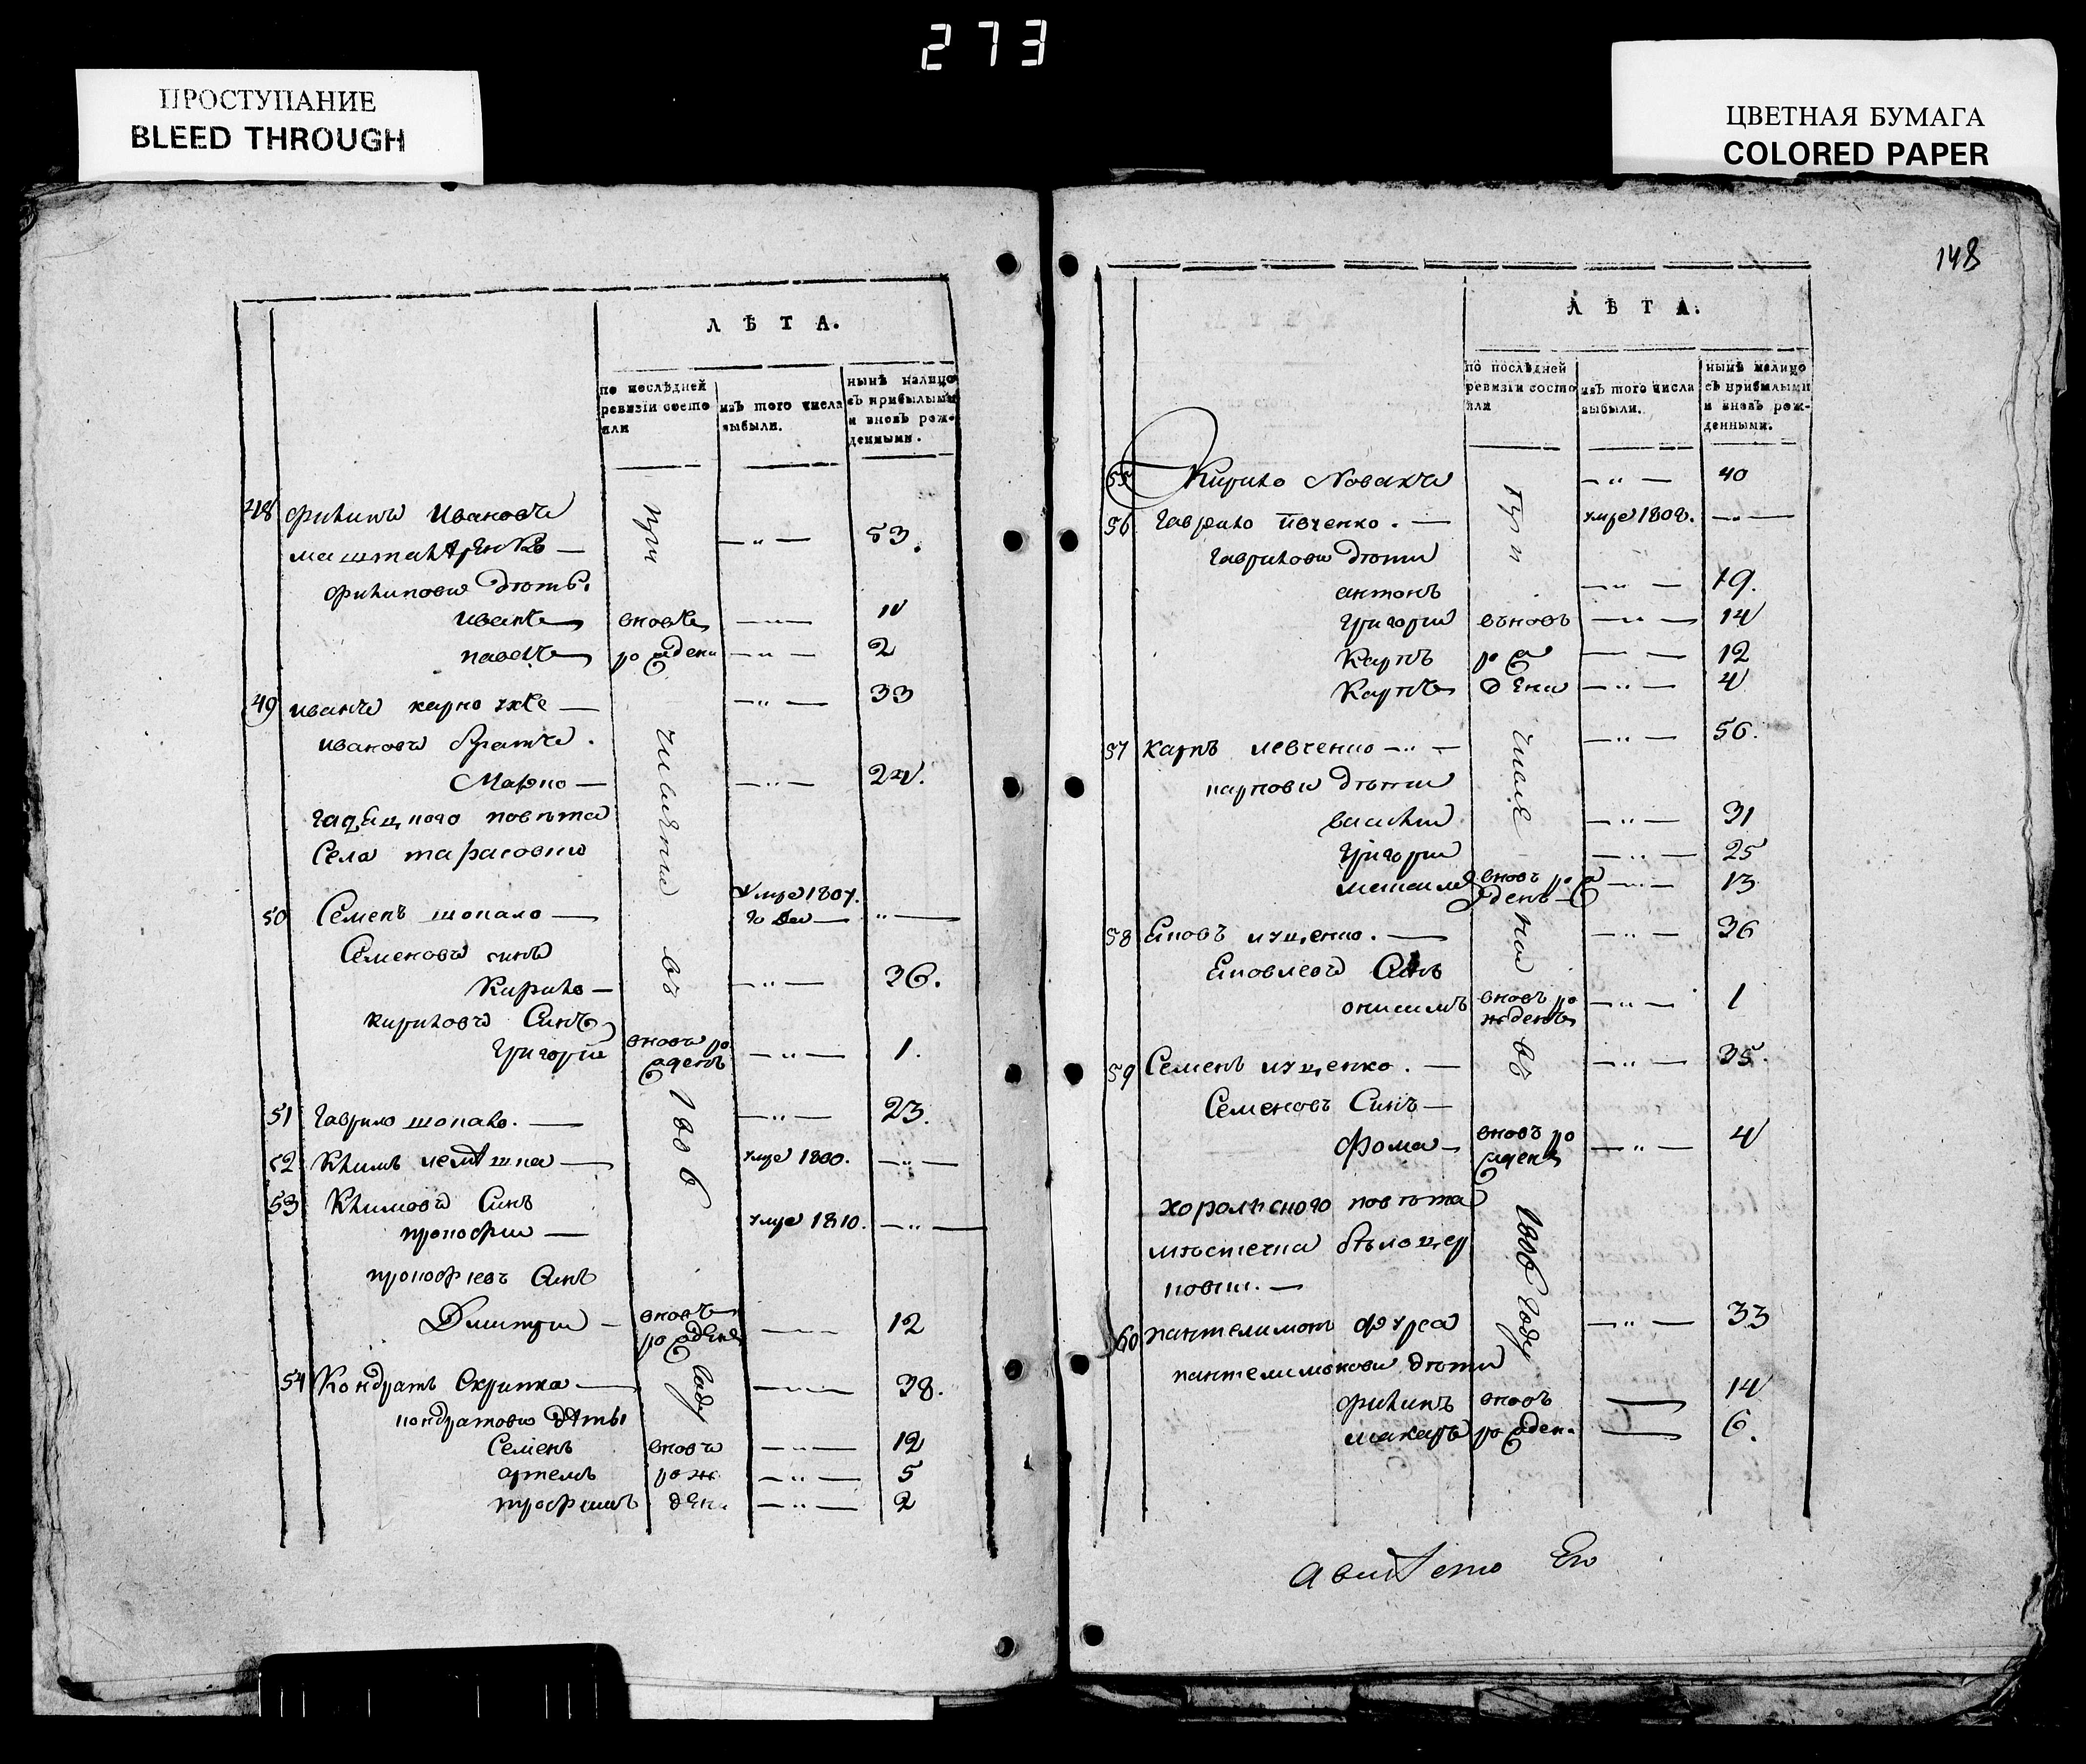 273
ПРОСТУПАНИЕ
BLEED THROUGH
ЦВЕТНАЯ БУМАГА
COLORED PAPER
ЛѢТА.
по послѣдней ревизіи состояли
изъ того числа выбыли.
нынѣ налицо съ прибылыми и вновь рожденными.
48 Филипъ Ивановъ
— „ — 53.
Филипови дѣти
Иванъ вновь — „ — 11
Павелъ рожден — „ — 2
49 Иванъ — — „ — 33
Ивановъ братъ.
Марко — — „ — 24.
гадяцкого повѣта
Села тарасовки
50 Семенъ шопало — умре 1807. „ —
Семеновъ синъ
Кирило — — „ — 36.
Кириловъ Синъ
Григорій вновь рожденъ — „ — 1.
51 Гаврило шопало. — — „ — 23.
52 Климъ — умре 1800. — „ —
53 Климовъ Синъ
прокофии — умре 1810. — „ —
прокофиевъ Синъ
Дмитри — вновъ рожден — 12
54 Кондратъ Скрипка — — 38.
кондратови дѣты
Семенъ вновъ — „ — 12
артемъ рож — „ — 5
трофимъ ден. — „ — 2
при
въ
1806
году
148
ЛѢТА.
по послѣдней ревизіи состояли
изъ того числа выбыли.
нынѣ налицо съ прибылыми и вновь рожденными.
55 Кирило Новакъ — „ — 40
56 Гаврило Ївченко. — умре 1808. — „ —
Гаврилови дѣти
антонъ — „ — 19.
Григорий вьновъ — „ — 14
Карпъ рож — „ — 12
Карпъ дени — „ — 4
57 Карпъ левченко — „ — — „ — 56.
карпови дѣти
василий — „ — 31
Григорий — „ — 25
вновъ рожденъ — „ — 13
58 Яковъ луценко. — — „ — 36
Яковлевъ Синъ
онисимъ вновъ рожденъ — „ — 1
59 Семенъ луценко. — — „ — 35.
Семеновъ Синъ —
Фома — вновъ рожденъ — „ — 4
хорольского повѣта
мѣстечка бѣлоцер
ковки. —
60 пантелимонъ фурса — „ — 33
пантелимонови дѣти
филипъ вновъ — 14
макаръ рожден. — 6.
при
въ
1806 году